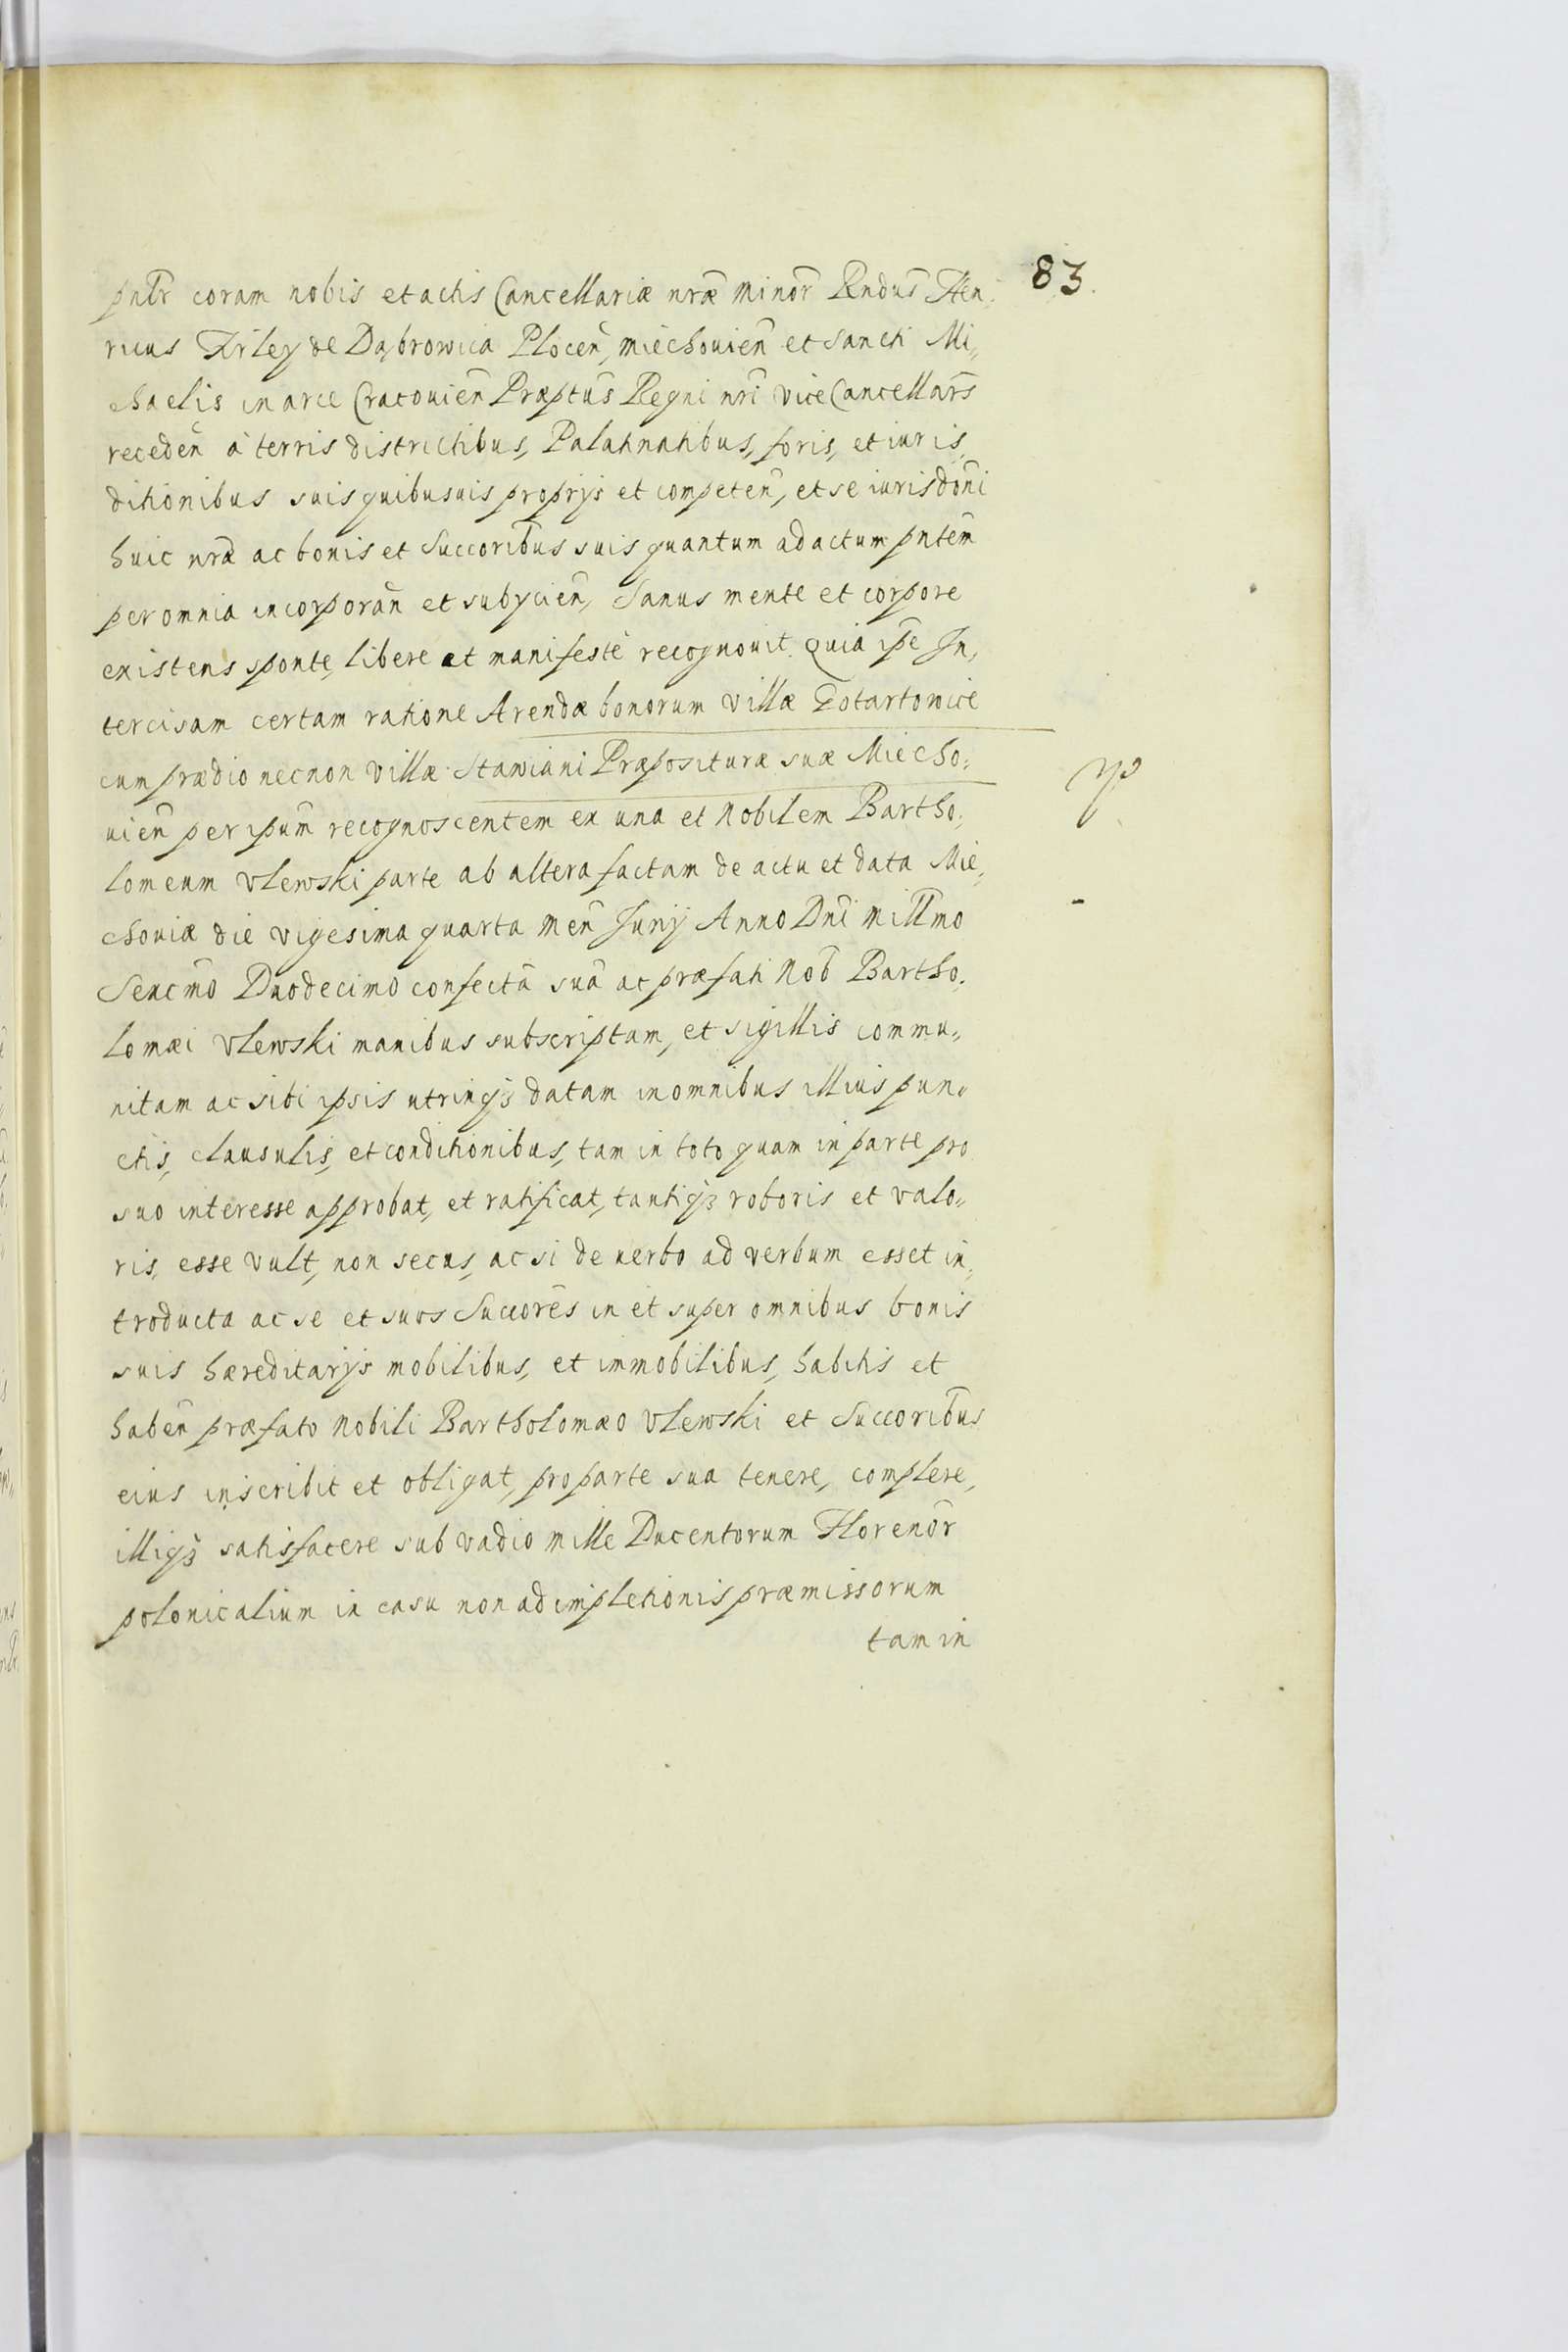 83.
pntr coram nobis et actis Cancellariæ nræ Minor Rndus Hen,
ricus Firley de Dąbrowica Plocen, Miechouien et Sancti Mi,
chaelis in arce Cracouien Præptus Regni nri ViceCancellars
receden à terris districtibus, Palatinatibus, foris, et iuris,
ditionibus suis quibusuis proprijs et competen, et se iurisdoni
huic nræ ac bonis et Succoribus suis quantum ad actum pntem
per omnia incorporan et subijcien, Sanus mente et corpore
existens sponte, libere et manifestè recognouit. Quia ipe In,
tercisam certam ratione Arendæ bonorum Villæ Gotartowice
cum prædio necnon Villæ Stawiani Præposituræ suæ Miecho,
uien per ipum recognoscentem ex una et Nobilem Bartho,
lomeum Vlewski parte ab altera factam de actu et data Mie,
chouiæ die vigesima quarta Men Junij Anno Dni Millmo
Sexcmo Duodecimo confectã suã ac præfati Nob Bartho,
lomæi Vlewski manibus subscriptam, et sigillis commu,
nitam ac sibi ipsis utrinqȝ datam in omnibus illius pun,
ctis, clausulis, et conditionibus, tam in toto quam in parte pro
suo interesse approbat, et ratificat, tantiqȝ roboris et valo,
ris, esse vult, non secus, ac si de uerbo ad verbum esset in,
troducta ac se et suos Succores in et super omnibus bonis
suis hæreditarijs mobilibus, et immobilibus, habitis et
haben præfato Nobili Bartholomæo Vlewski et Succoribus
eius inscribit et obligat, pro parte sua tenere, complere,
illiqȝ satisfacere sub vadio Mille Ducentorum Florenor
polonicalium in casu non adimpletionis præmissorum
tam in